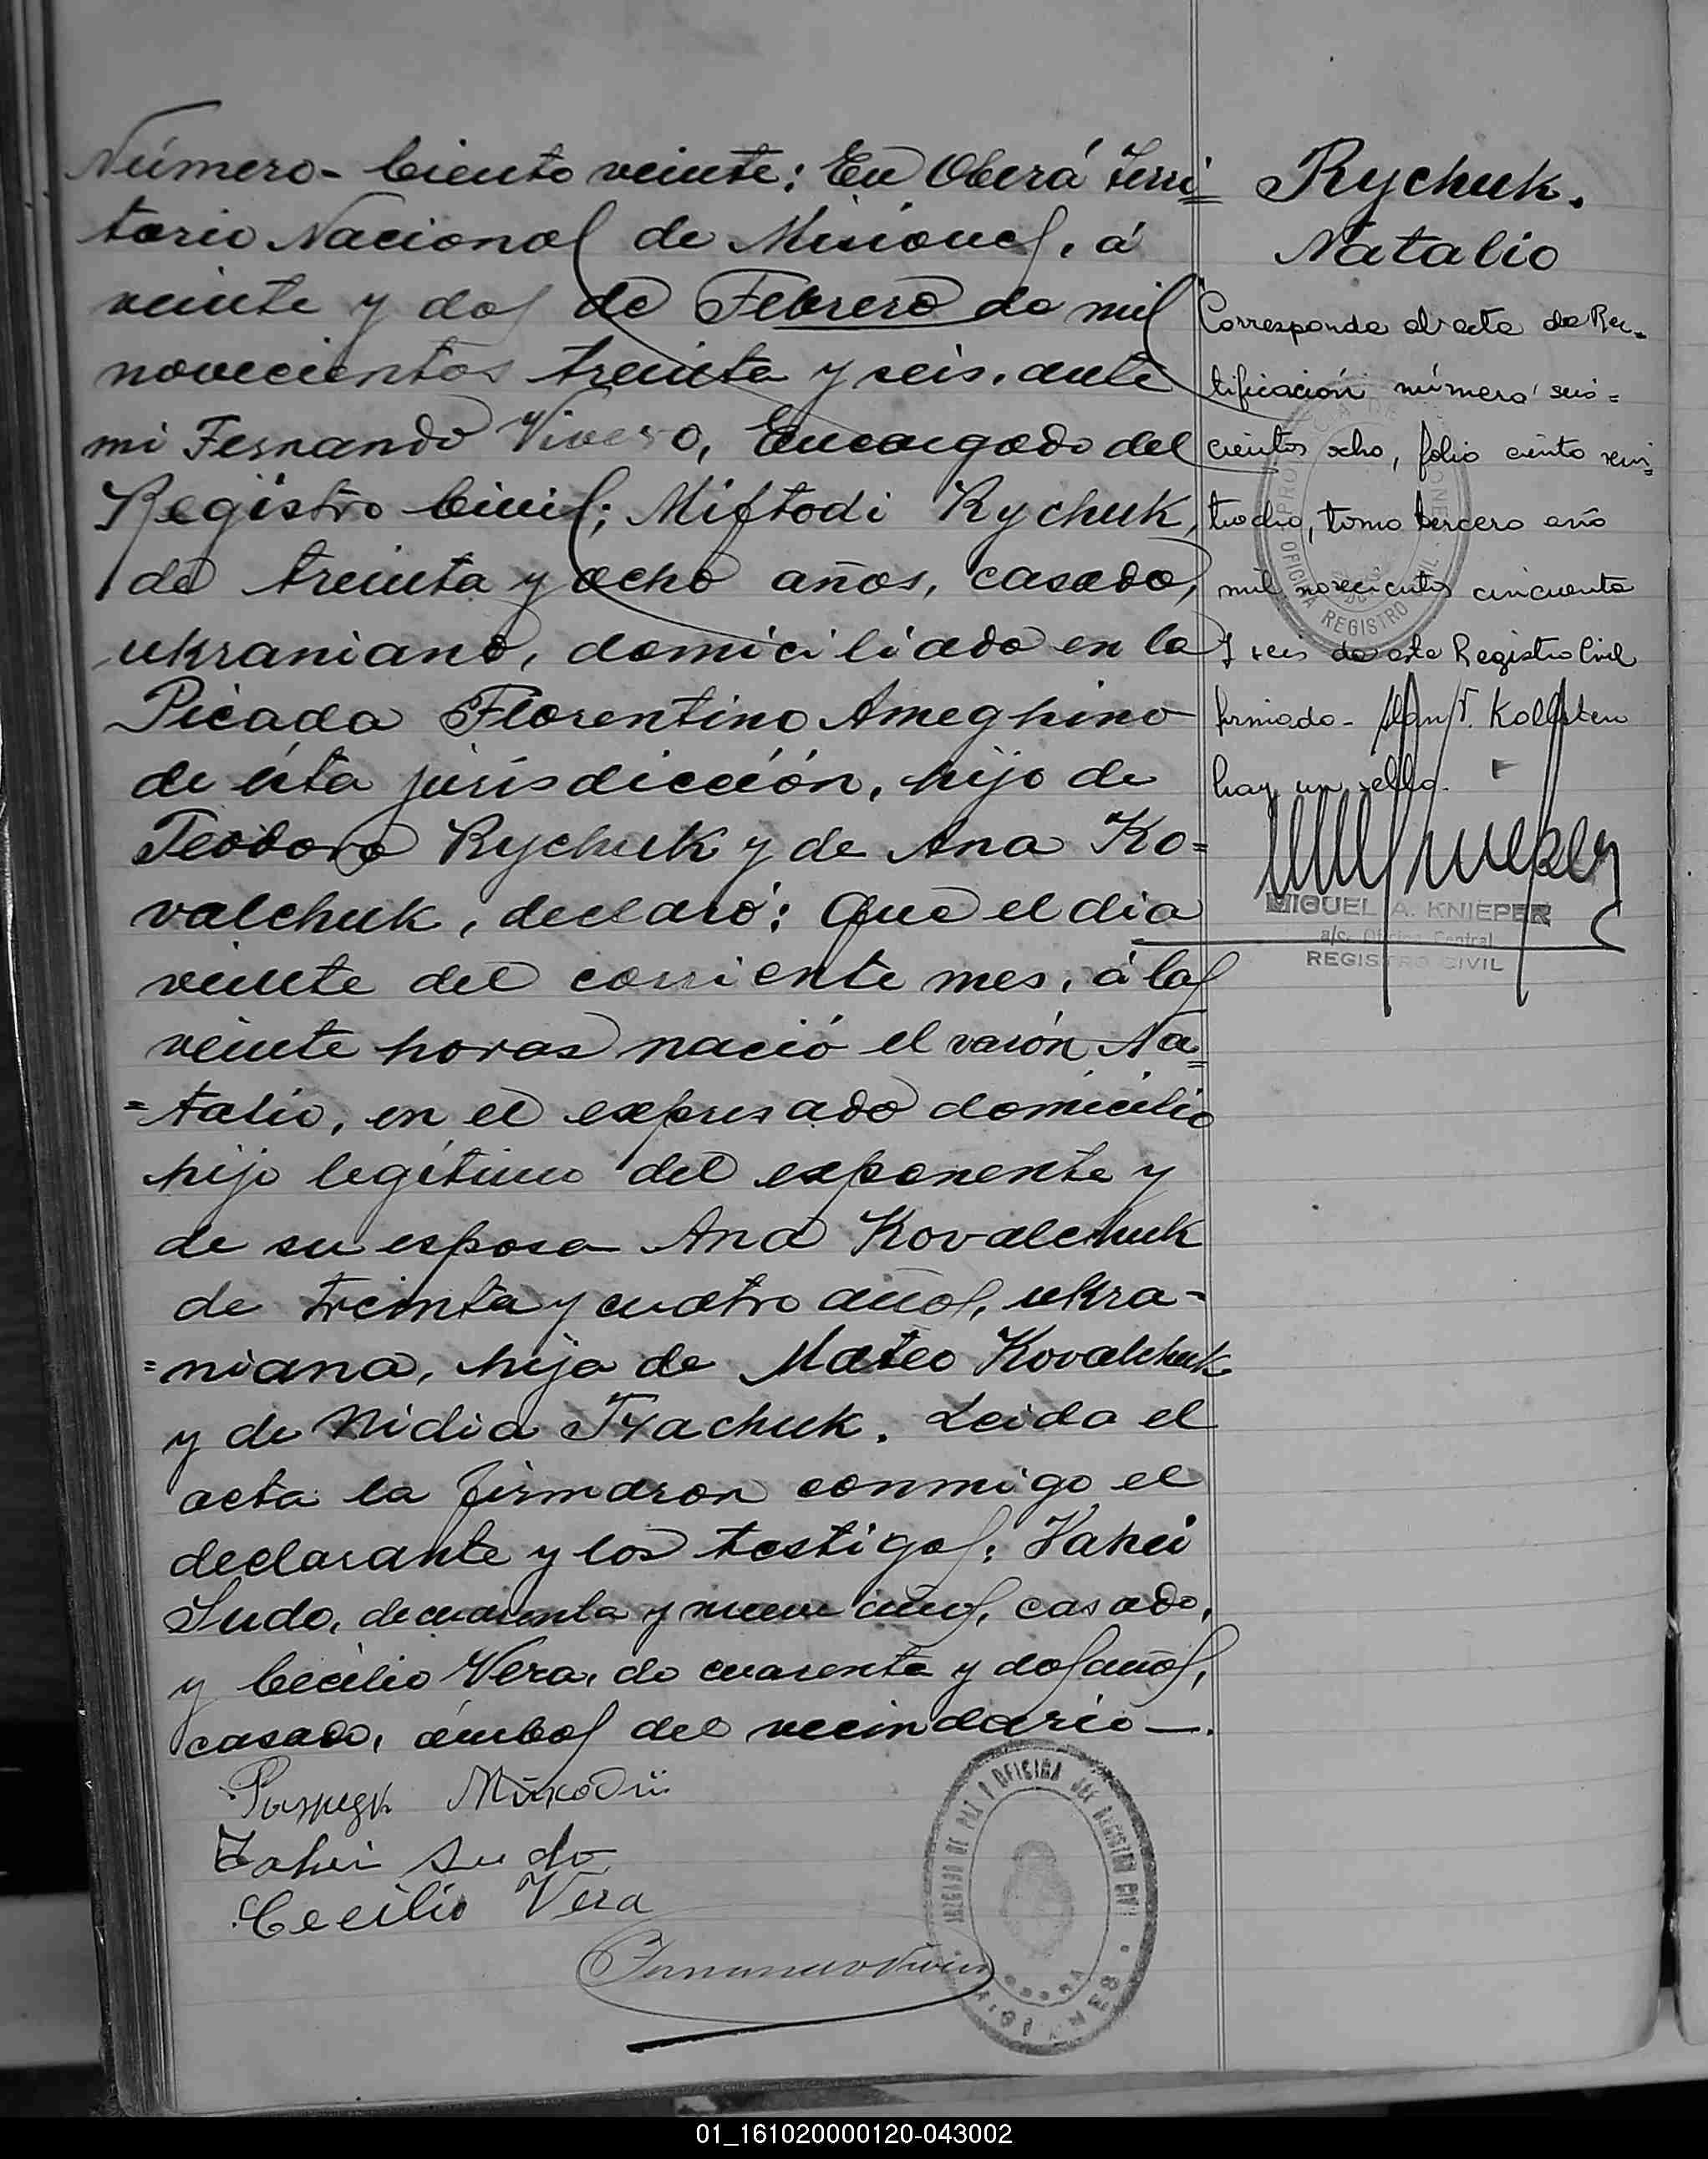 Número- Ciento veinte: En Oberá Terri=
torio Nacional de Misiones, á
veinte y dos de Febrero de mil
novecientos treinta y seis, ante
mi Fernando Vivero, Encargado del
Registro Civil; Miftodi Rychuk,
de treinta y ocho años, casado,
ukraniano, domiciliado en la
Picada Florentino Ameghino
de ésta jurisdicción, hijo de
Teodoro Rychuk y de Ana Ko=
valchuk, declaró: Que el dia
veinte del corriente mes, á las
veinte horas nació el varón Na=
=talio, en el expresado domicilio
hijo legítimo del exponente y
de su esposa Ana Kovalchuk
de treinta y cuatro años, ukra-
=niana, hija de Mateo Kovalchuk
y de Nidia Txachuk. Leida el
acta la firmaron conmigo el
declarante y los testigos: Vahei
Sudo, de cuarenta y nueve años, casado,
y Cecilio Vera, de cuarenta y dos años,
casado, ámbos del vecindario—.
Sudo
Cecilio Vera
JUZGADO DE PAZ Y OFICINA DEL REGISTRO CIVIL
OBERA
Rychuk.
Natalio
Corresponde al acta de Rec-
tificación número seis=
cientos ocho, folio ciento vein=
tiocho, tomo tercero año
mil novecientos cincuenta
y seis de este Registro Civil
firmado-
hay un sello.
OFICINA REGISTRO CIVIL
MIGUEL A. KNIEPER
a/c. Oficina Central
REGISTRO CIVIL
01_161020000120-043002